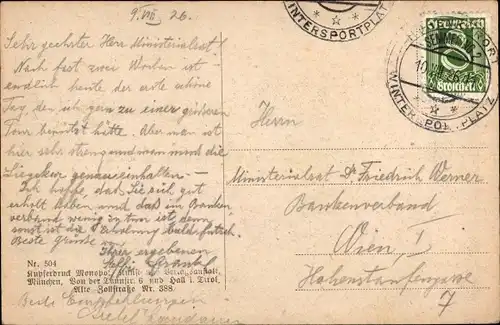 9. VIII 26.
Sehr geehrter Herr Ministerialrat!
Nach fast zwei Wochen ist
endlich heute der erste schöne
Tag den ich gern zu einer größeren
Tour benützt hätte. Aber man ist
hier sehr streng und man muß die
Liegekur genau einhalten. —
Ich hoffe, daß Sie sich gut
erholt haben und daß im Banken
verband wenig zu tun ist, denn
sonst ist die Erholung bald futsch.
Beste Grüße von
Ihrer ergebenen
Beste Empfehlungen
Nr. 504
Kupferdruck Monopol
München, Von der Tannstr. 6 und Hall i. Tirol,
Alte Zollstraße Nr. 388.
Herrn
Ministerialrat Dr Friedrich Werner
Bankenverband
Wien, I
Hohenstaufengasse
7
WINTERSPORTPLATZ
WINTERSPORTPLATZ
Groschen